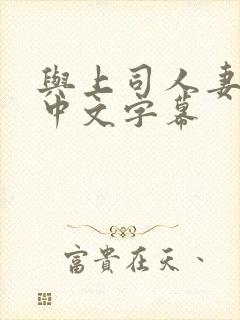 與上司人妻
中文字幕
富貴在天、